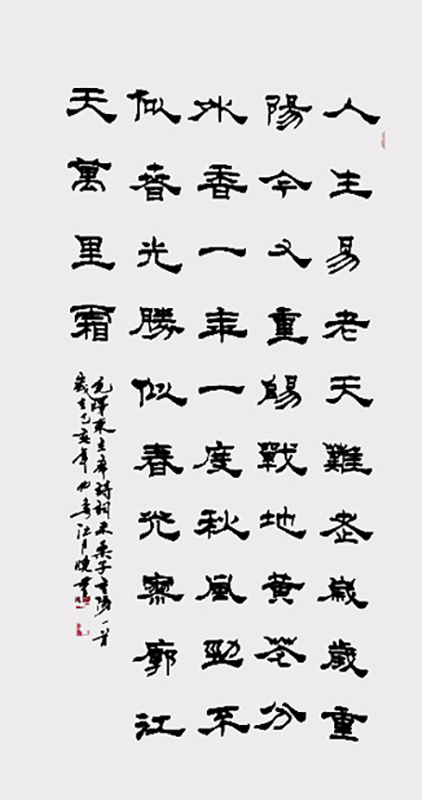 人生易老天難老歲歲重
陽今又重陽戰地黃花分
外香一年一度秋風勁不
似春光勝似春光寥廓江
天萬里霜
毛澤東主席詩詞采桑子重陽一首
歲在己亥年江月曉書